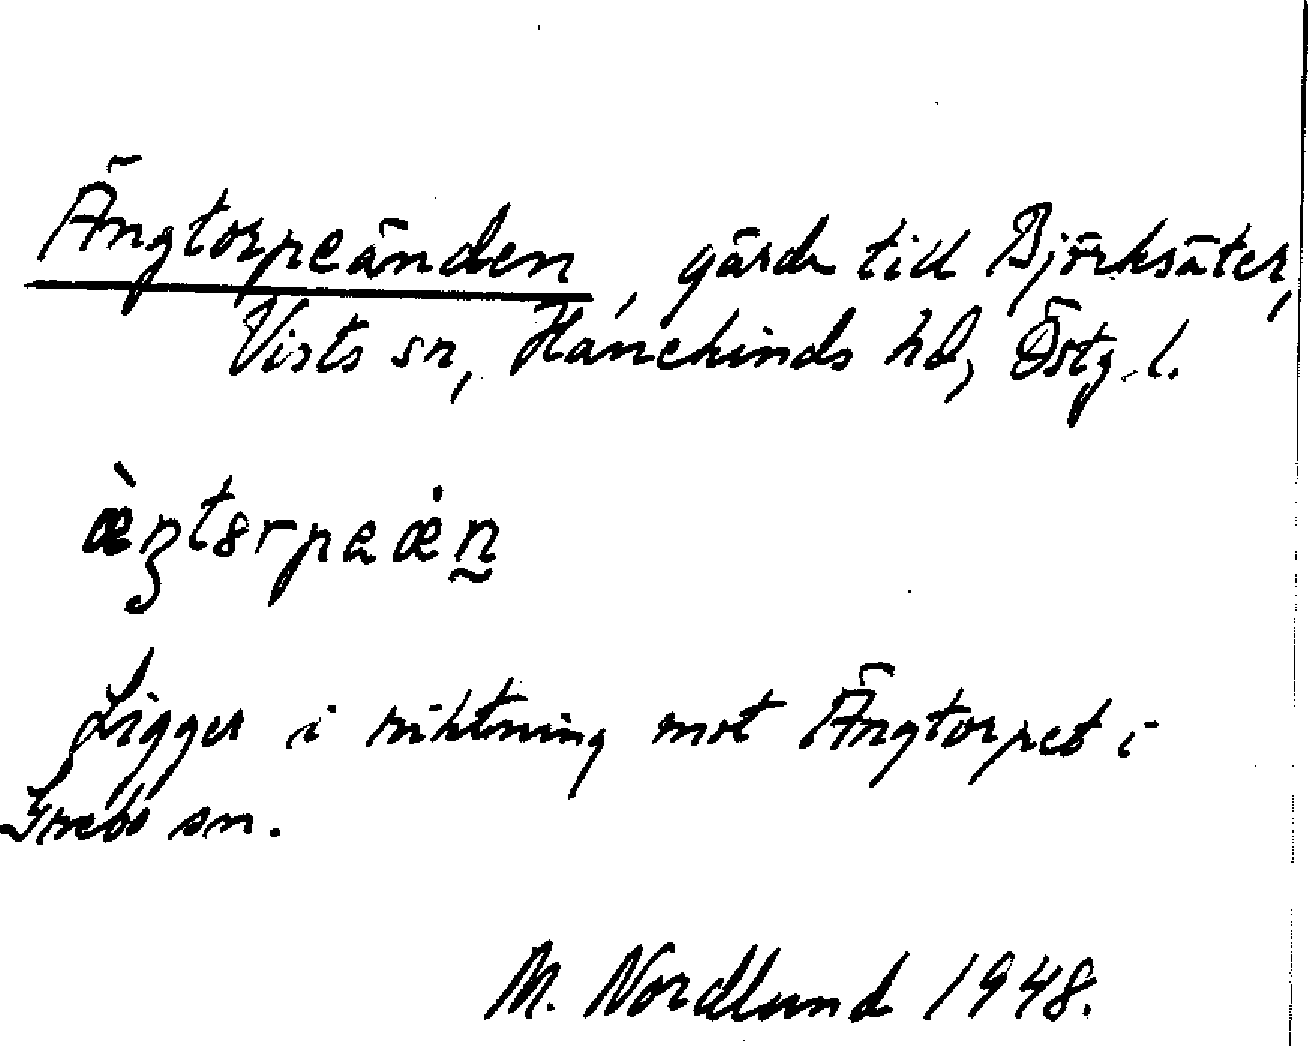 Ängtorpeänden, gärde till Björksäter,
Vists sn, Hanekinds hd, Östg. l.
æ̀ŋtørpeæ̇n̰
Ligger i riktning mot Ängtorpet i
Grebo sn.
M. Nordlund 1948.